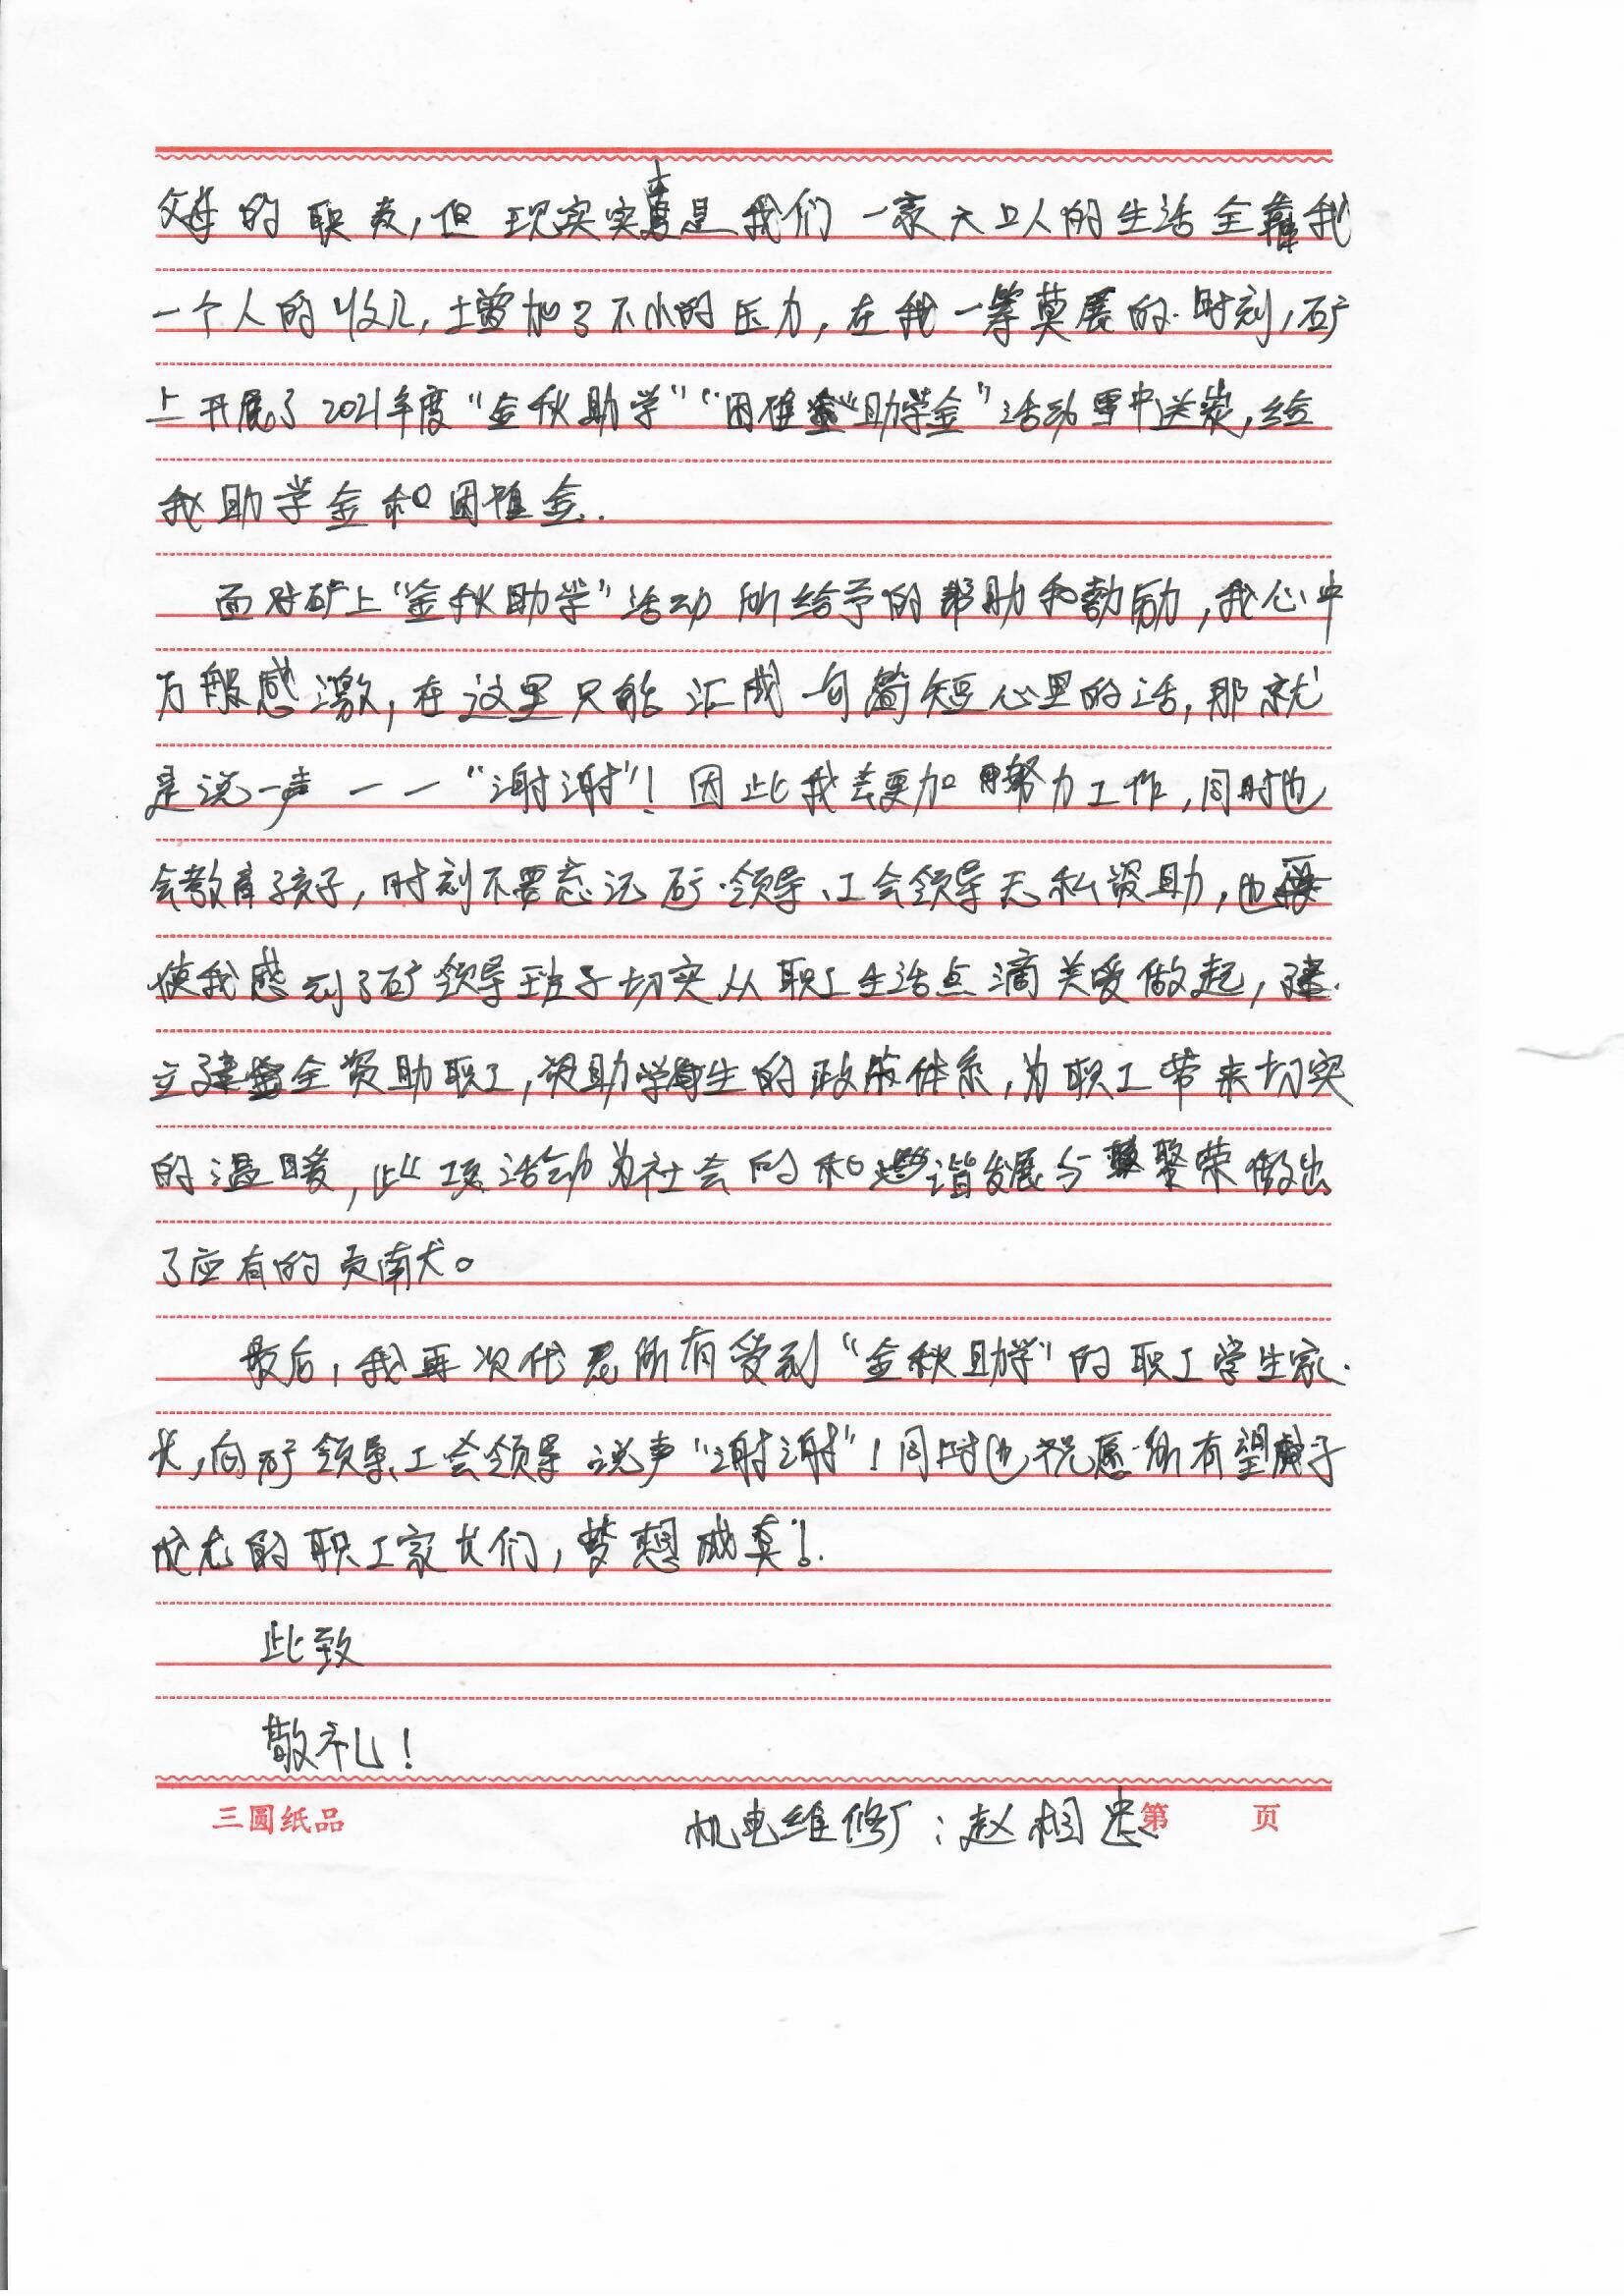 父母的职责，但现实实是我们一家六口人的生活全靠我
一个人的收入，增加了不小的压力，在我一筹莫展的时刻，矿
上开展了2021年度“金秋助学”“困难金”“助学金”活动雪中送炭，给
我助学金和困难金.
面对矿上“金秋助学”活动所给予的帮助和勉励，我心中
万般感激，在这里只能汇成一句简短心里的话，那就
是说一声——“谢谢”！因此我会更加努力工作，同时也
会教育孩子，时刻不要忘记矿领导、工会领导无私资助，也
使我感到了矿领导班子切实从职工生活点滴关爱做起，建
立健全资助职工，资助学生的政策体系，为职工带来切实
的温暖，此项活动为社会的和谐发展与繁荣做出
了应有的贡献。
最后，我再次代表所有受到“金秋助学”的职工学生家
长，向矿领导、工会领导说声“谢谢”！同时也祝愿所有望子
成龙的职工家长们，梦想成真！
此致
敬礼！
三圆纸品 第 页
机电维修厂：赵相忠